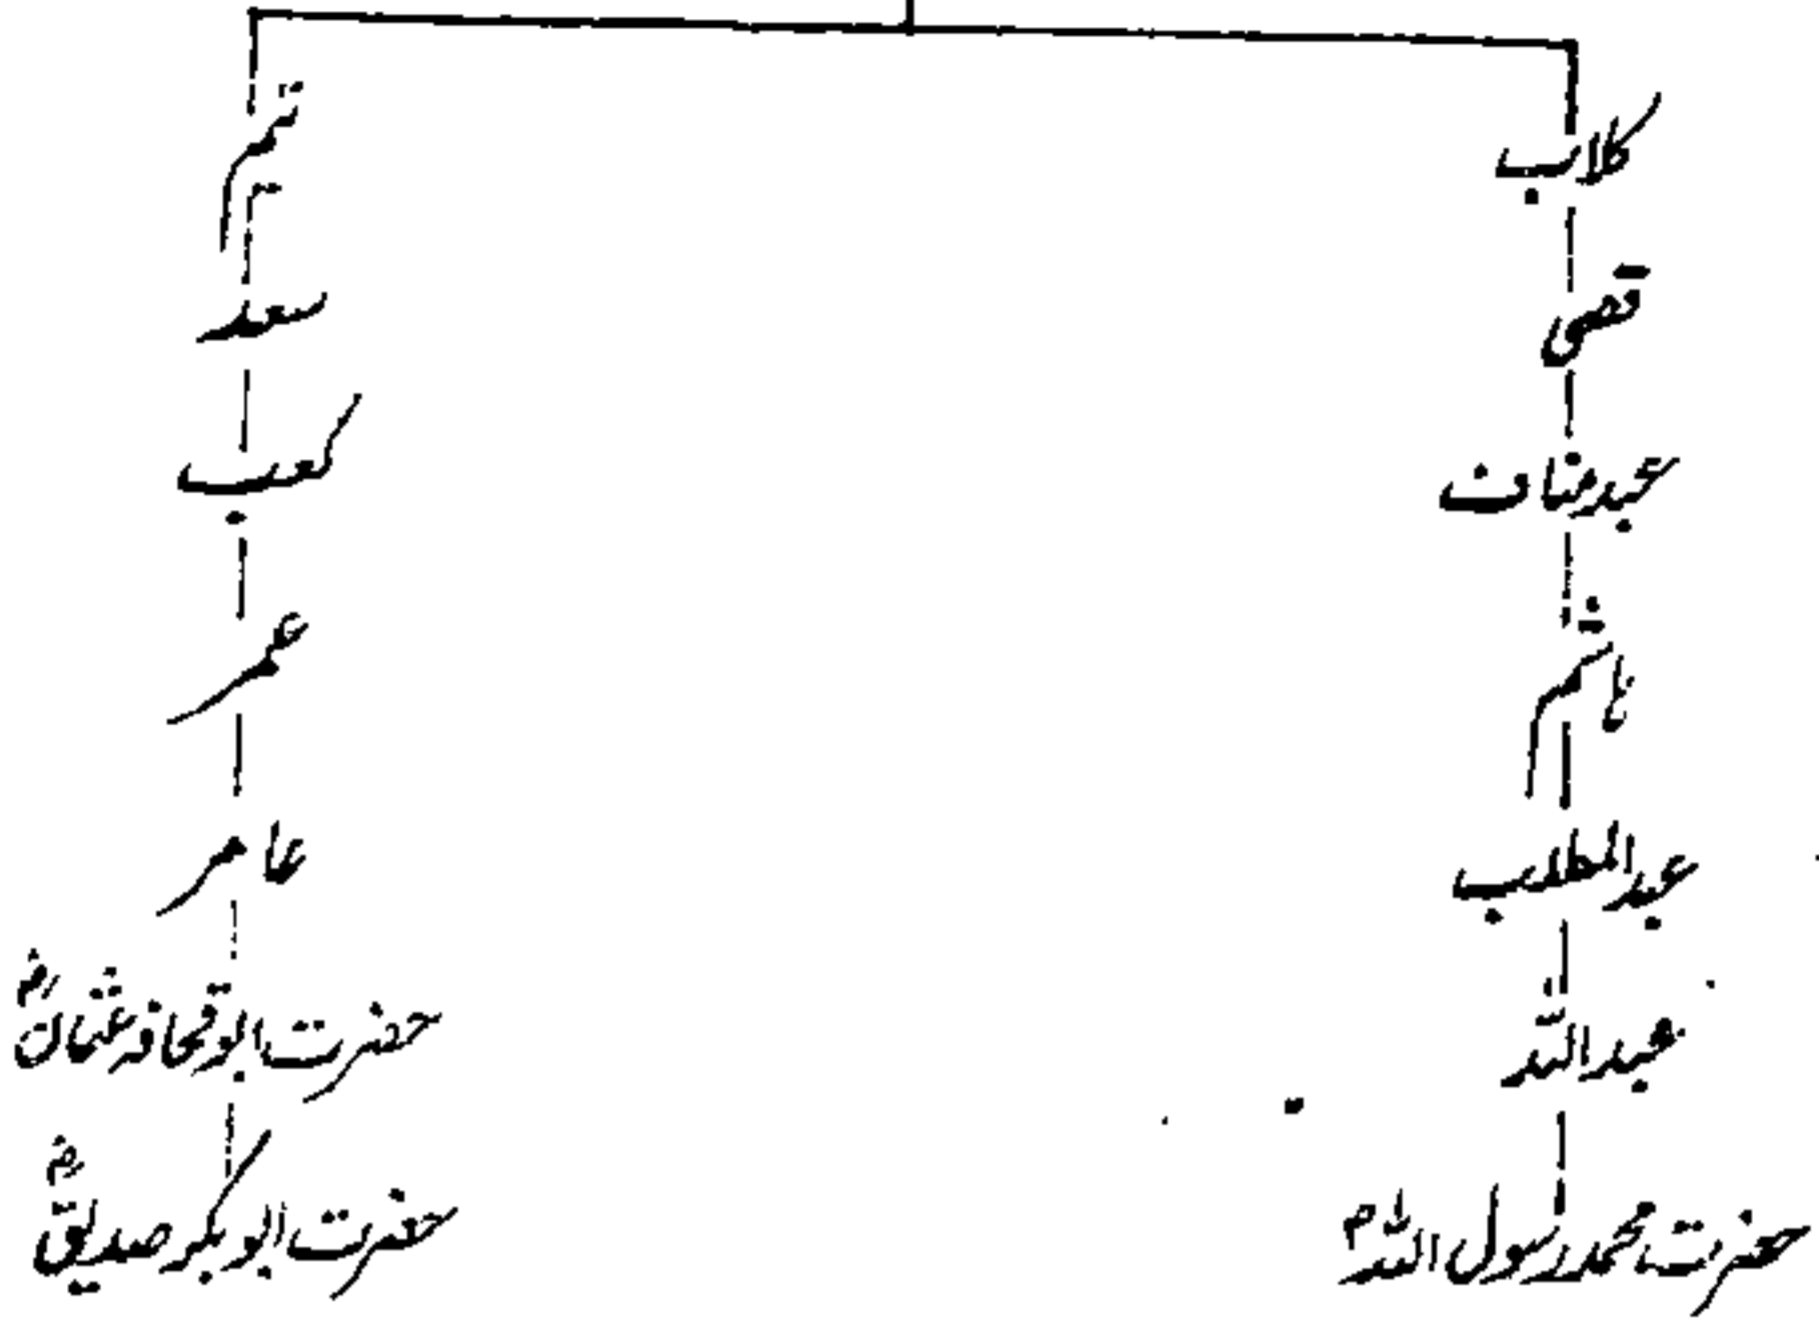 کلاب
قصی
عبدمناف
ہاشم
عبدالمطلب
عبداللہ
حضرت محمد رسول اللہ ﷺ
تیم
سعد
کعب
عمر
عامر
حضرت ابوقحافہ عثمانؓ
حضرت ابوبکر صدیقؓ